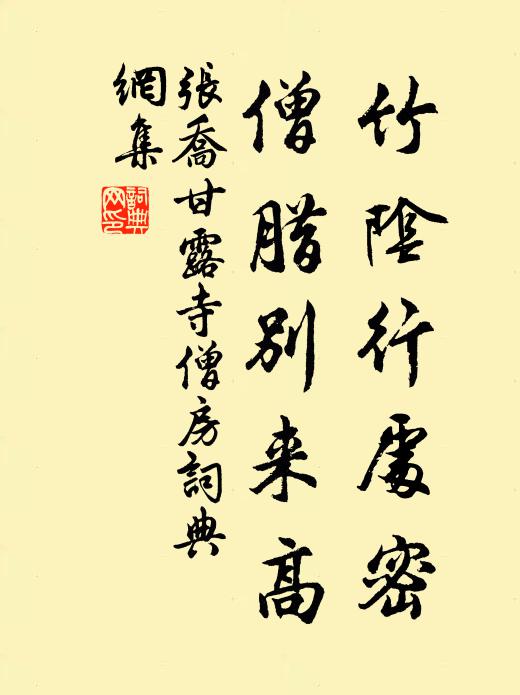 竹陰行處密
僧腊別来高
張喬甘露寺僧房詞典
網集
詞典網印